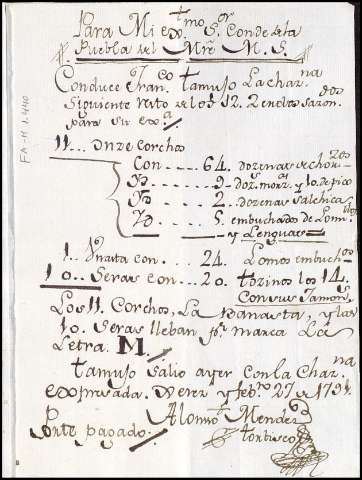 Para Mi exᵗᵐᵒ Sʳ Conde de la
Puebla del Mrē M. S.
Conduce Franᶜᵒ Tamujo La Charⁿᵃ
Siguiente neto de los 12. 2 endos sazonᵈᵒˢ
para su exᵃ
11... Onze Corchos
Con---64. dozenas de chorᶻᵒˢ
Yᵈ---9. dozˢ morzˢ y 10. de pico
Yᵈ---2. dozenas salchicᵃˢ
Yᵈ---5. embuchado de Lomⁱˡˡᵒˢ
y Lenguas
1.. Vnata con--24. Lomos embuchᵒˢ
10.. Seras con--20. tozinos los 14.
Con sus Jamonˢ
Los 11. Corchos, La Banasta, y las
10. Seras lleban pʳ marca La
Letra. M
Tamujo salio ayer con la Charⁿᵃ
expresada. Xerez y febʳᵒ 27 de 1791.
Alonso Mendez
Tortisco
Porte pagado.
FA-H 1.440